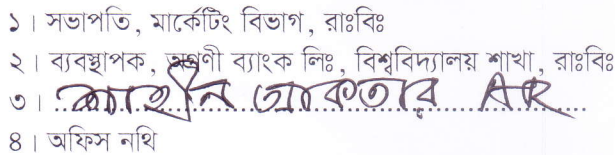 ১। সভাপতি, মার্কেটিং বিভাগ, রাঃবিঃ
২। ব্যবস্থাপক, অগ্রণী ব্যাংক লিঃ, বিশ্ববিদ্যালয় শাখা, রাঃবিঃ
৩। শাহীন আকতার AR
৪। অফিস নথি